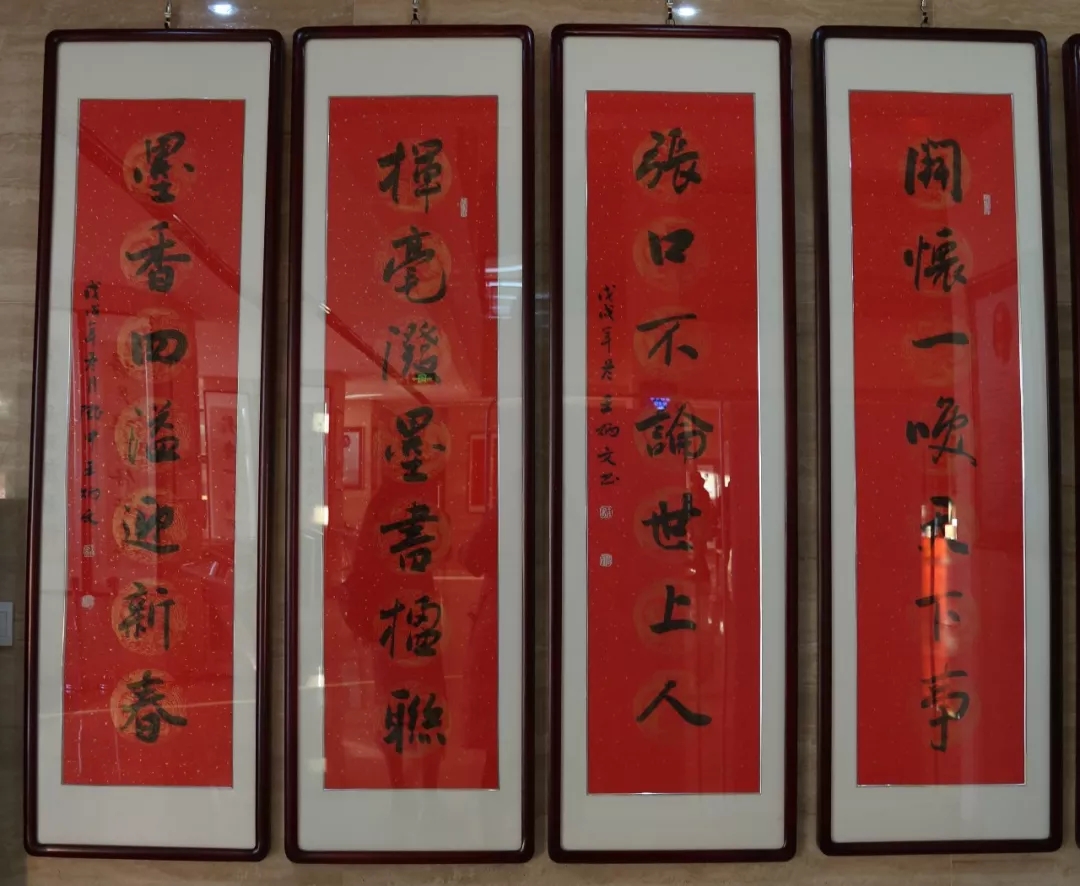 開懷一喚天下事
張口不論世上人
戊戌年春王炳文书
揮毫潑墨書楹聯
墨香四溢迎新春
戊戌年月王炳文